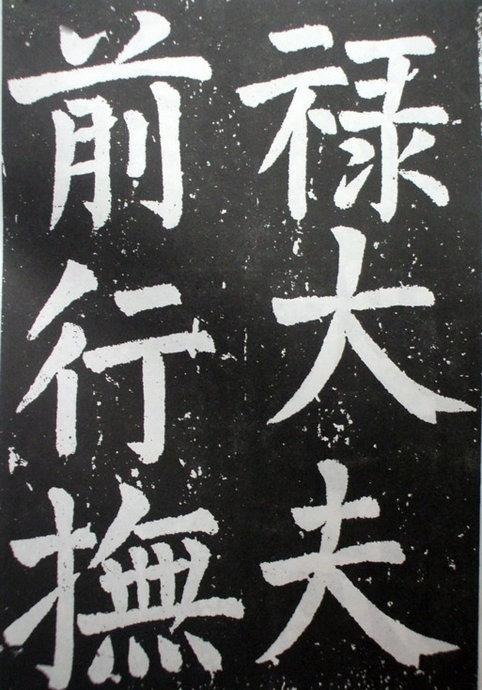 禄大夫
前行撫